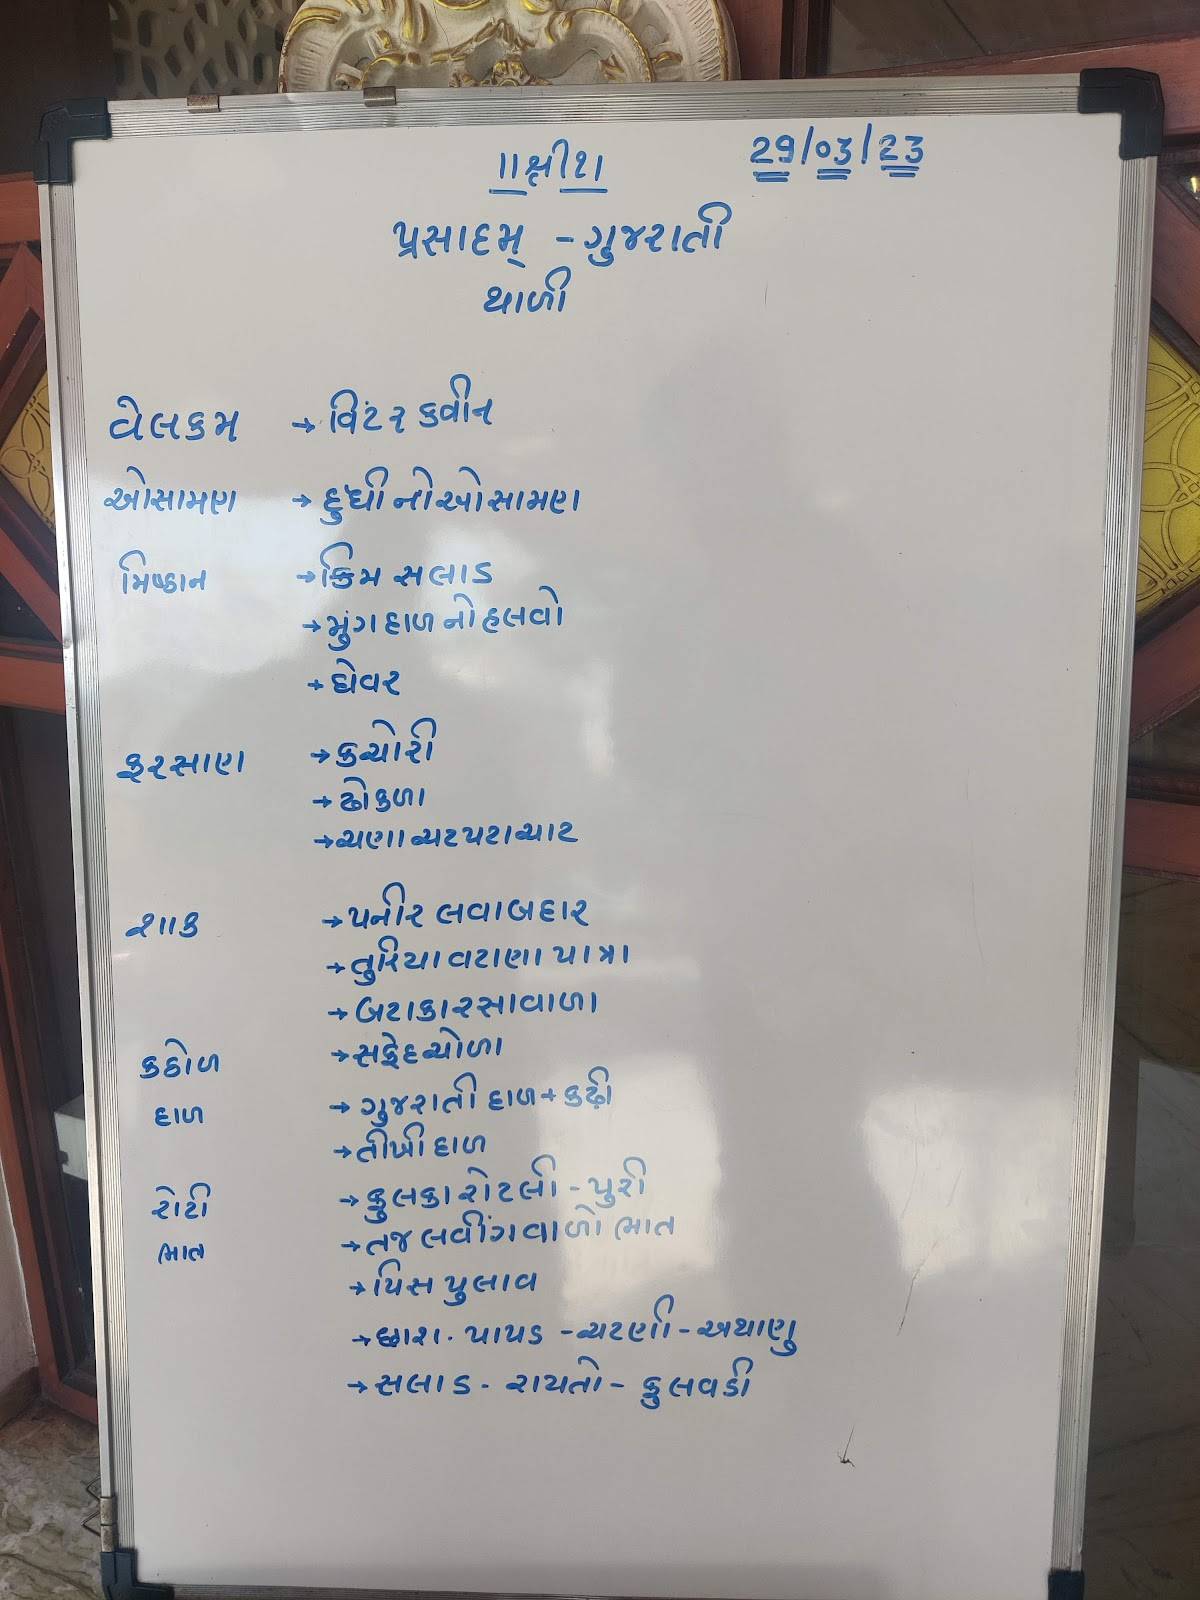 ॥શ્રી૧॥ 29/03/23
પ્રસાદમ્ - ગુજરાતી
થાળી
વેલકમ → વિંટર કવીન
ઓસામણ → દુધી નો ઓસામણ
મિષ્ઠાન → ક્રિમ સલાડ
→ મુંગ દાળ નો હલવો
→ ઘેવર
ફરસાણ → કચોરી
→ ઢોકળા
→ ચણા ચટપટા ચાટ
શાક → પનીર લવાબદાર
→ તુરિયા વટાણા પાત્રા
→ બટાકા રસાવાળા
કઠોળ → સફેદ ચોળા
દાળ → ગુજરાતી દાળ + કઢી
→ તીખી દાળ
રોટી → ફુલકા રોટલી - પુરી
ભાત → તજ લવીંગ વાળો ભાત
→ પિસ પુલાવ
→ છાશ. પાપડ - ચટણી - અથાણુ
→ સલાડ - રાયતો - ફુલવડી